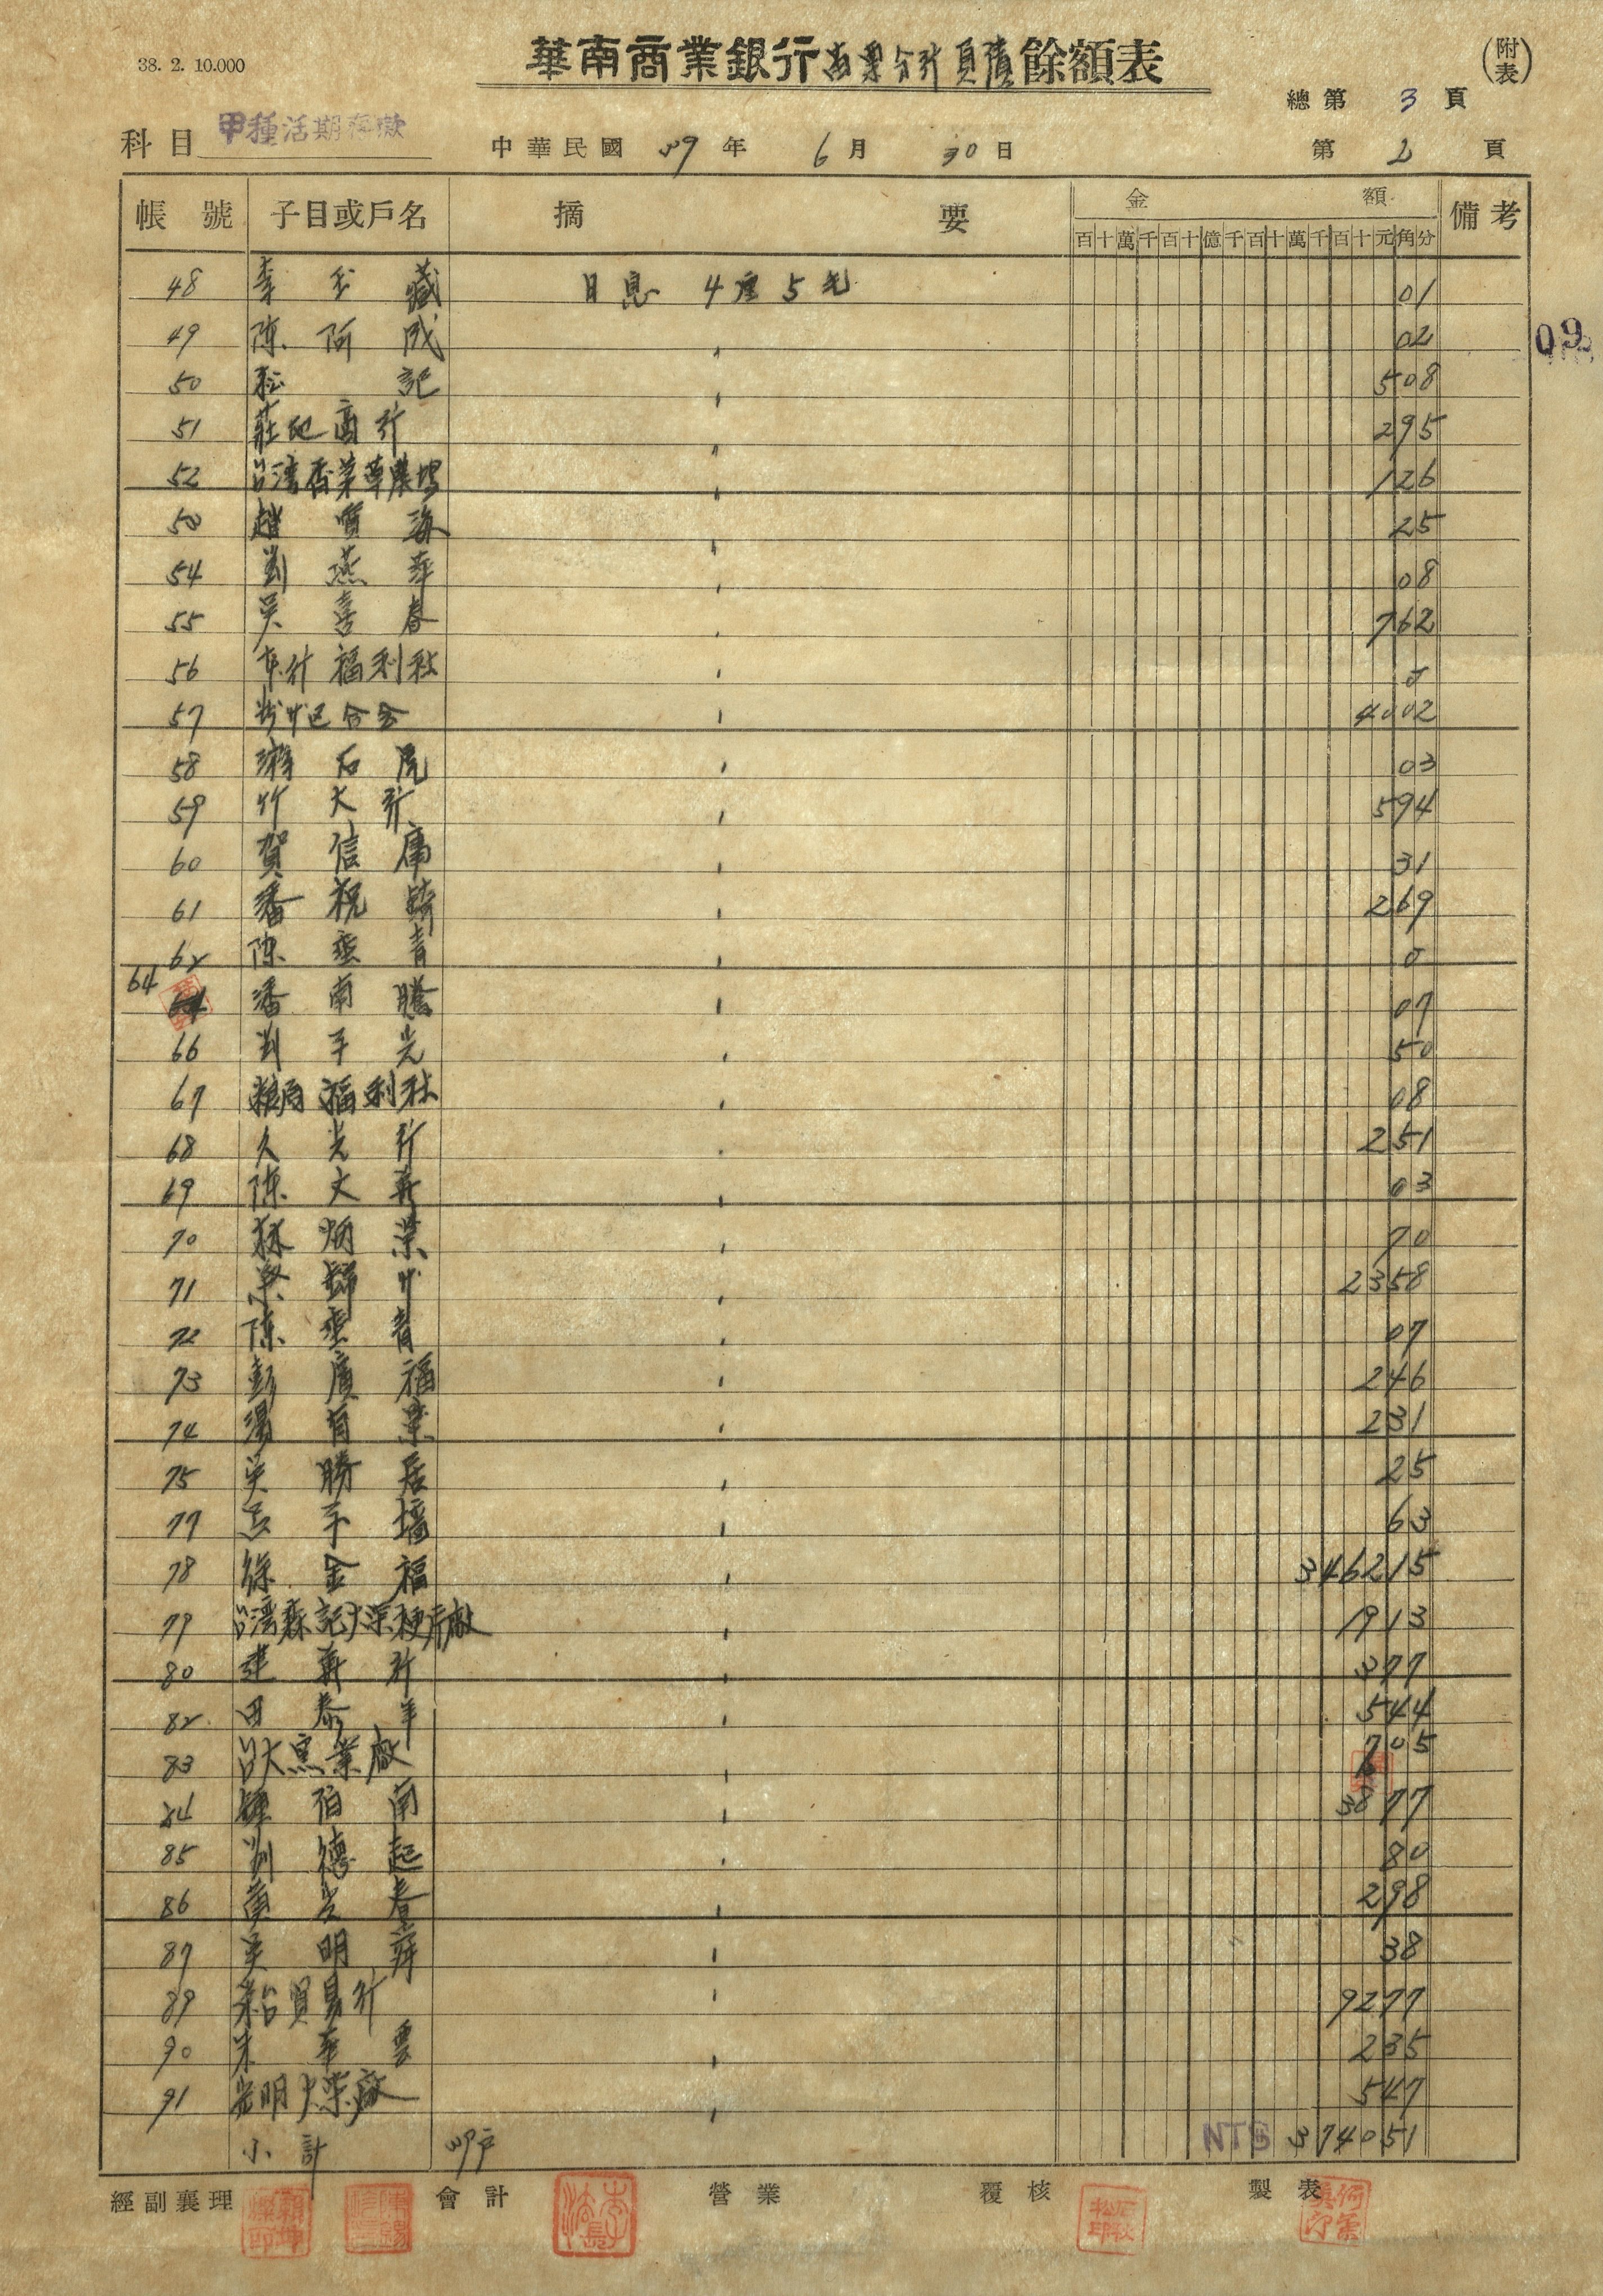 38. 2. 10.000
華南商業銀行 負債餘額表
(附表)
總第 3 頁
科目 甲種活期存款 中華民國 39 年 6 月 30 日 第 2 頁
帳號 子目或戶名 摘要 金額 備考
百十萬千百十億千百十萬千百十元角分
48 李玉藏 日息 4厘5毛 01
49 陳阿成 〃 02
09
50 松記 〃 508
51 莊記商行 〃 295
52 台湾香茅草農場 〃 126
53 趙質 〃 25
54 劉燕華 〃 08
55 吳喜春 〃 762
56 福利社 〃 0
57 〃 4002
58 石虎 〃 03
59 竹大行 〃 594
60 賀信庸 〃 31
61 潘祝 〃 269
62 陳垂青 〃 0
64 潘南騰 〃 07
66 劉平光 〃 50
67 粮局福利社 〃 08
68 久光行 〃 251
69 陳大新 〃 03
70 林炳業 〃 70
71 〃 2358
72 陳垂青 〃 07
73 彭廣福 〃 246
74 湯有業 〃 231
75 吳勝居 〃 25
77 〃 63
78 徐金福 〃 346215
79 台湾森記火柴梗片廠 〃 1913
80 建新行 〃 377
82 田泰年 〃 544
83 台大窯業廠 〃 705
84 鍾伯南 〃 3877
85 劉德起 〃 80
86 春 〃 298
87 吳明 〃 38
89 台貿易行 〃 9277
90 朱華雲 〃 235
91 光明火柴廠 〃 547
小計 39戶 NT$ 374051
經副襄理 會計 營業 覆核 製表